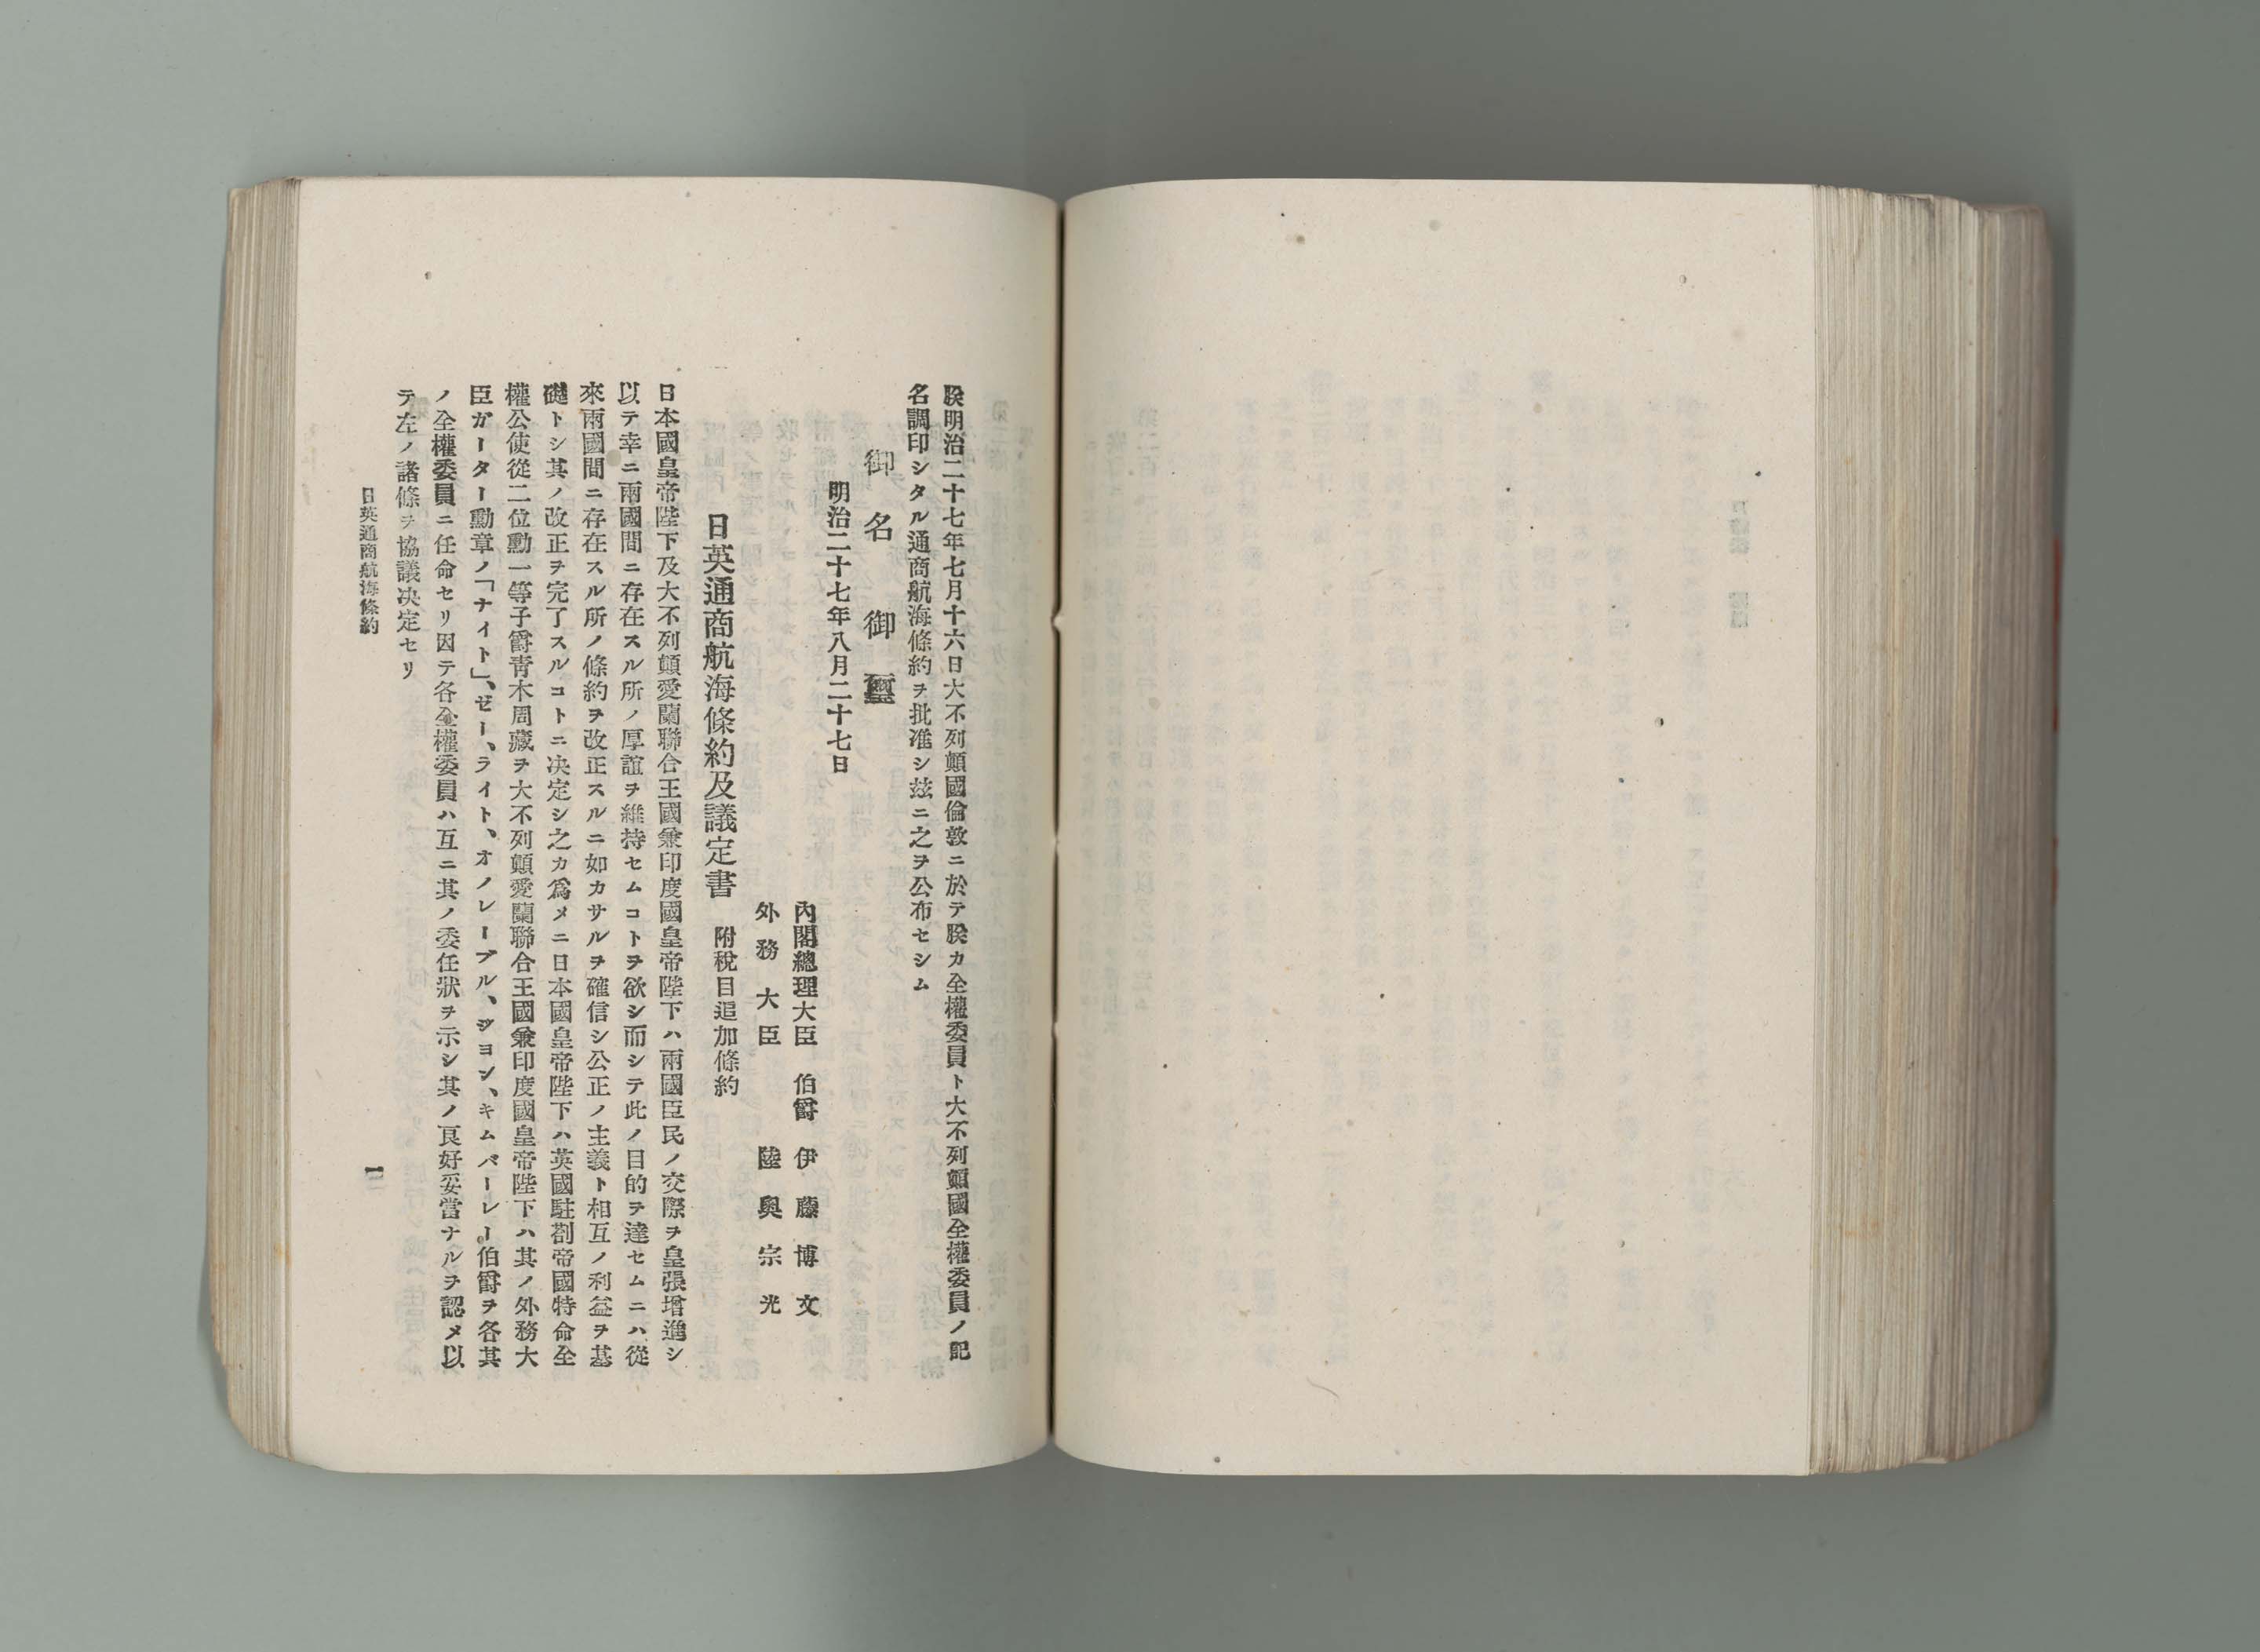 朕明治二十七年七月十六日大不列顛國倫敦ニ於テ朕カ全權委員ト大不列顛國全權委員ノ記
名調印シタル通商航海條約ヲ批准シ玆ニ之ヲ公布セシム
御名御璽
明治二十七年八月二十七日
內閣總理大臣 伯爵 伊藤博文
外務大臣 陸奧宗光
日英通商航海條約及議定書 附稅目追加條約
日本國皇帝陛下及大不列顛愛蘭聯合王國兼印度國皇帝陛下ハ兩國臣民ノ交際ヲ皇張增進シ
以テ幸ニ兩國間ニ存在スル所ノ厚誼ヲ維持セムコトヲ欲シ而シテ此ノ目的ヲ達セムニハ從
來兩國間ニ存在スル所ノ條約ヲ改正スルニ如カサルヲ確信シ公正ノ主義ト相互ノ利益ヲ基
礎トシ其ノ改正ヲ完了スルコトニ决定シ之カ爲メニ日本國皇帝陛下ハ英國駐劄帝國特命全
權公使從二位勳一等子爵青木周藏ヲ大不列顛愛蘭聯合王國兼印度國皇帝陛下ハ其ノ外務大
臣ガーター勳章ノ「ナイト」、ゼー、ライト、オノレーブル、ジョン、キムバーレー伯爵ヲ各其
ノ全權委員ニ任命セリ因テ各全權委員ハ互ニ其ノ委任狀ヲ示シ其ノ良好妥當ナルヲ認メ以
テ左ノ諸條ヲ協議决定セリ
日英通商航海條約
一